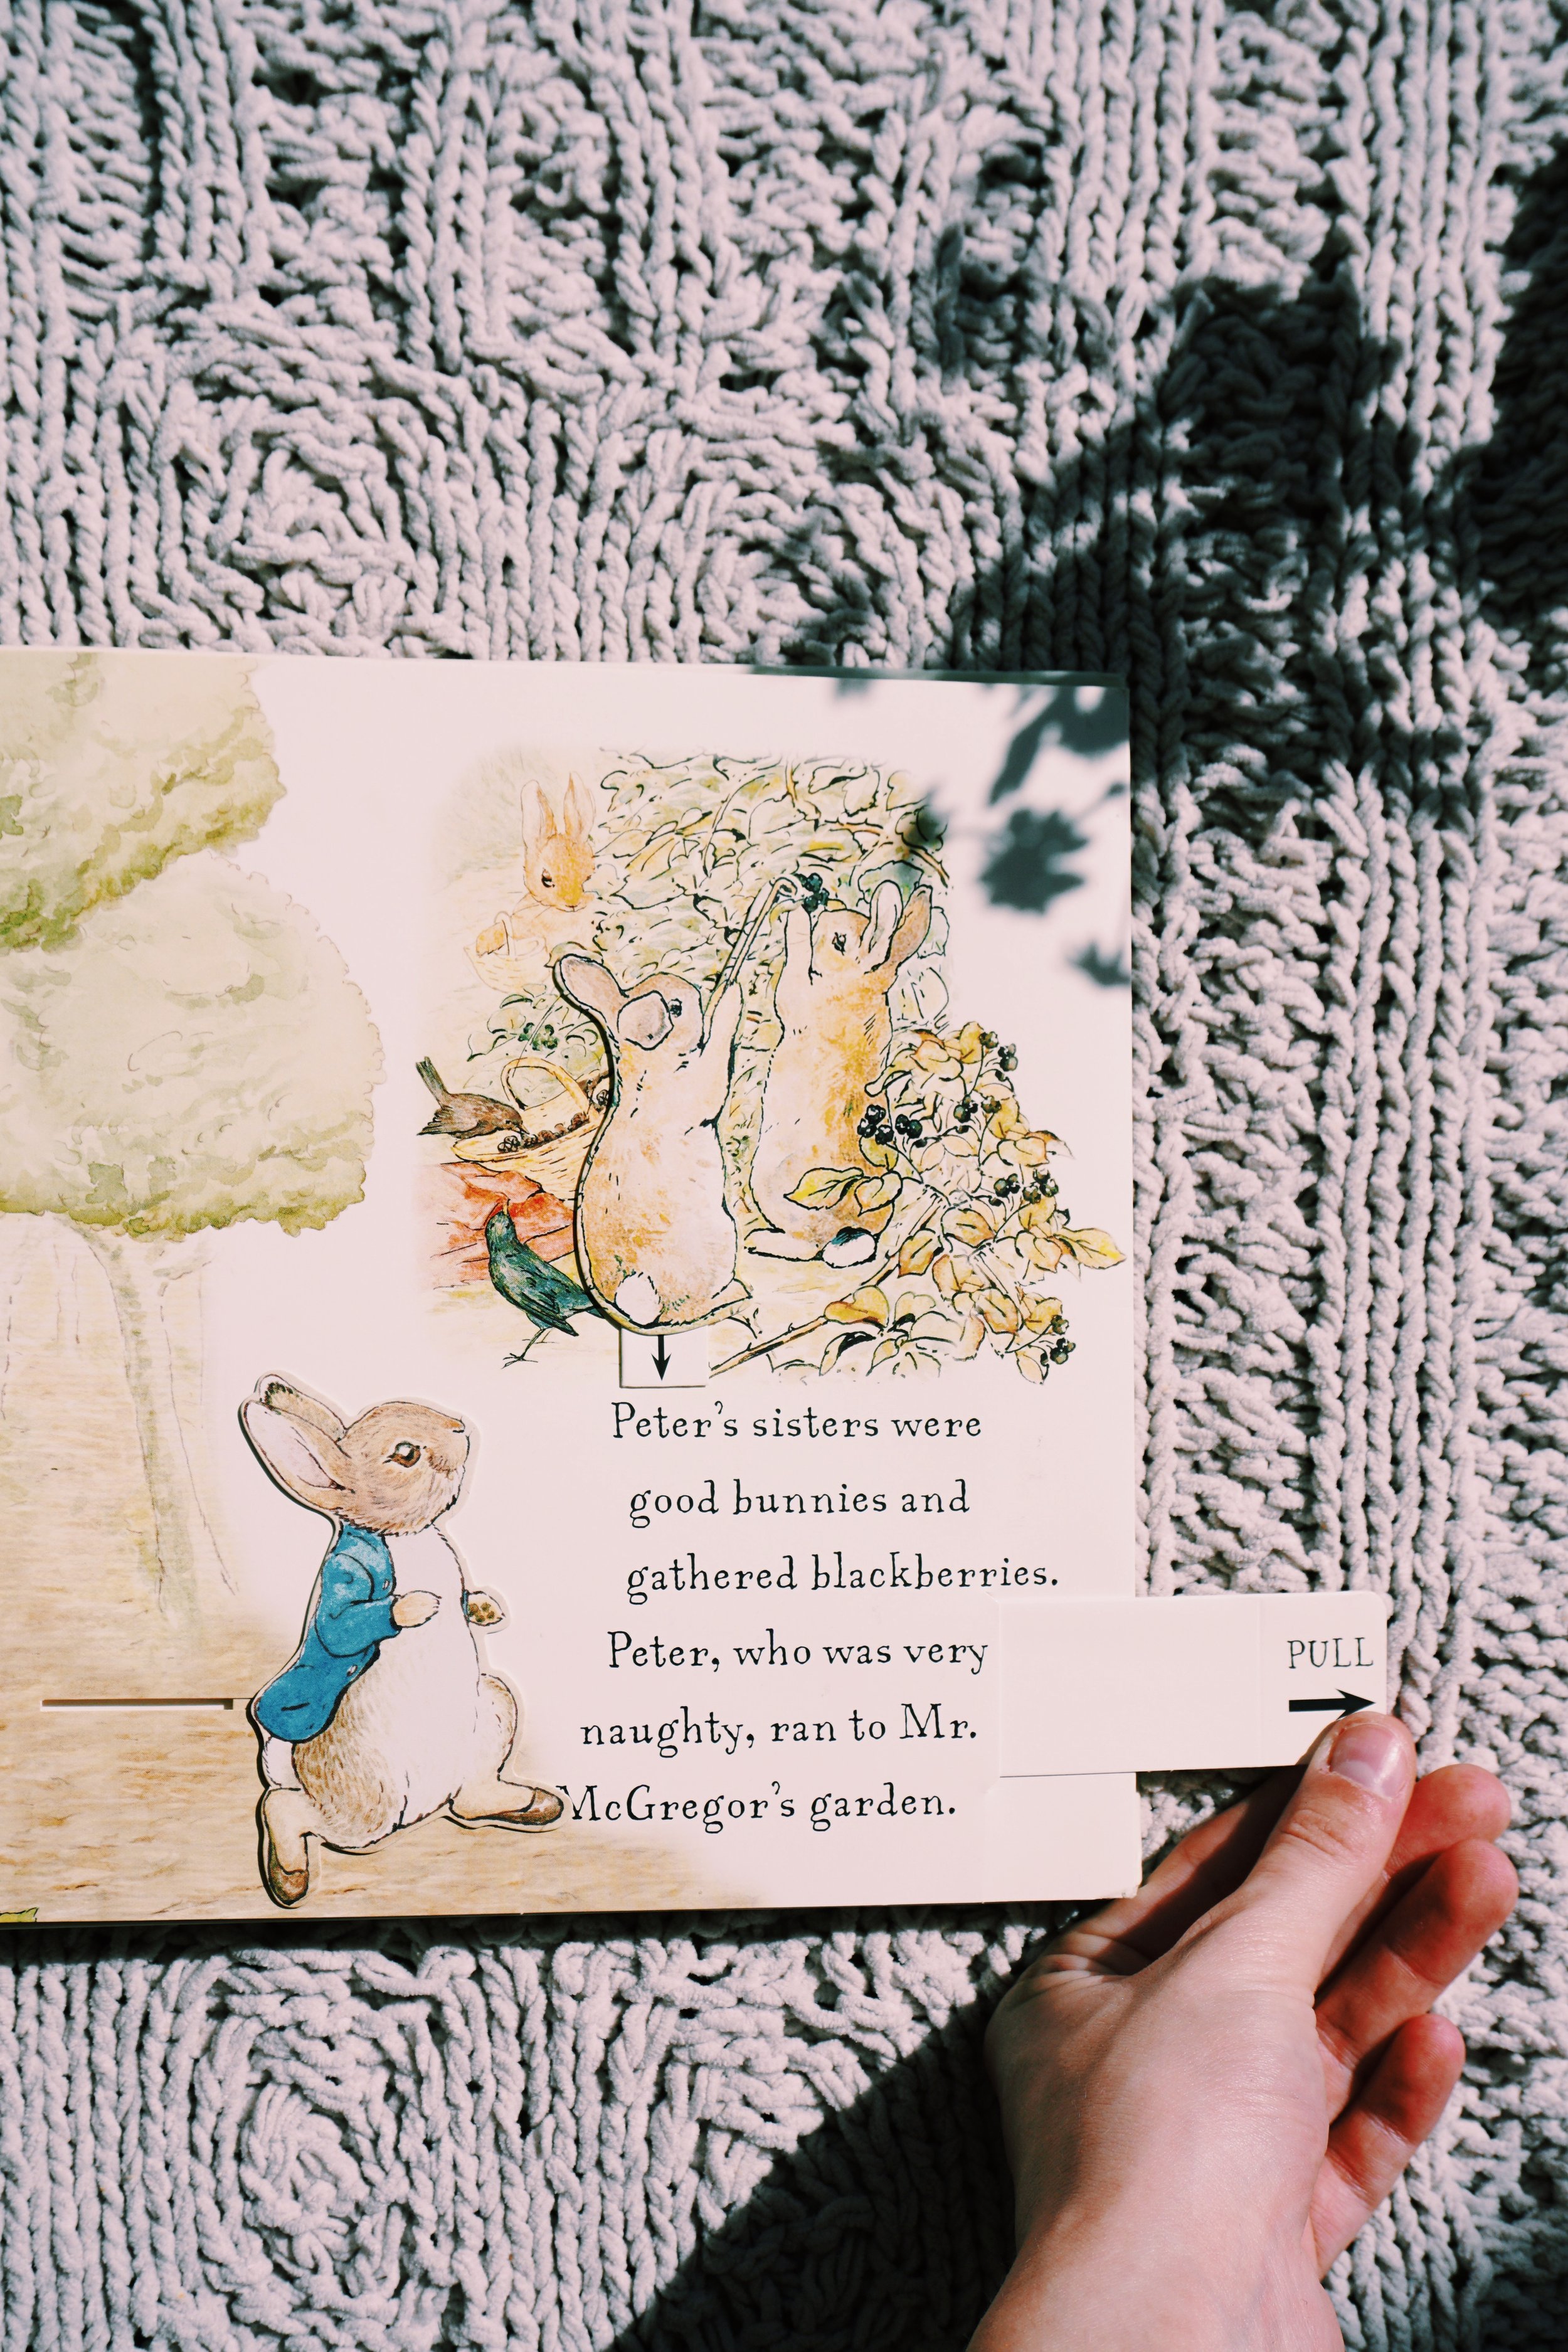 Peter's sisters were
good bunnies and
gathered blackberries.
Peter, who was very
naughty, ran to Mr.
McGregor's garden.
PULL